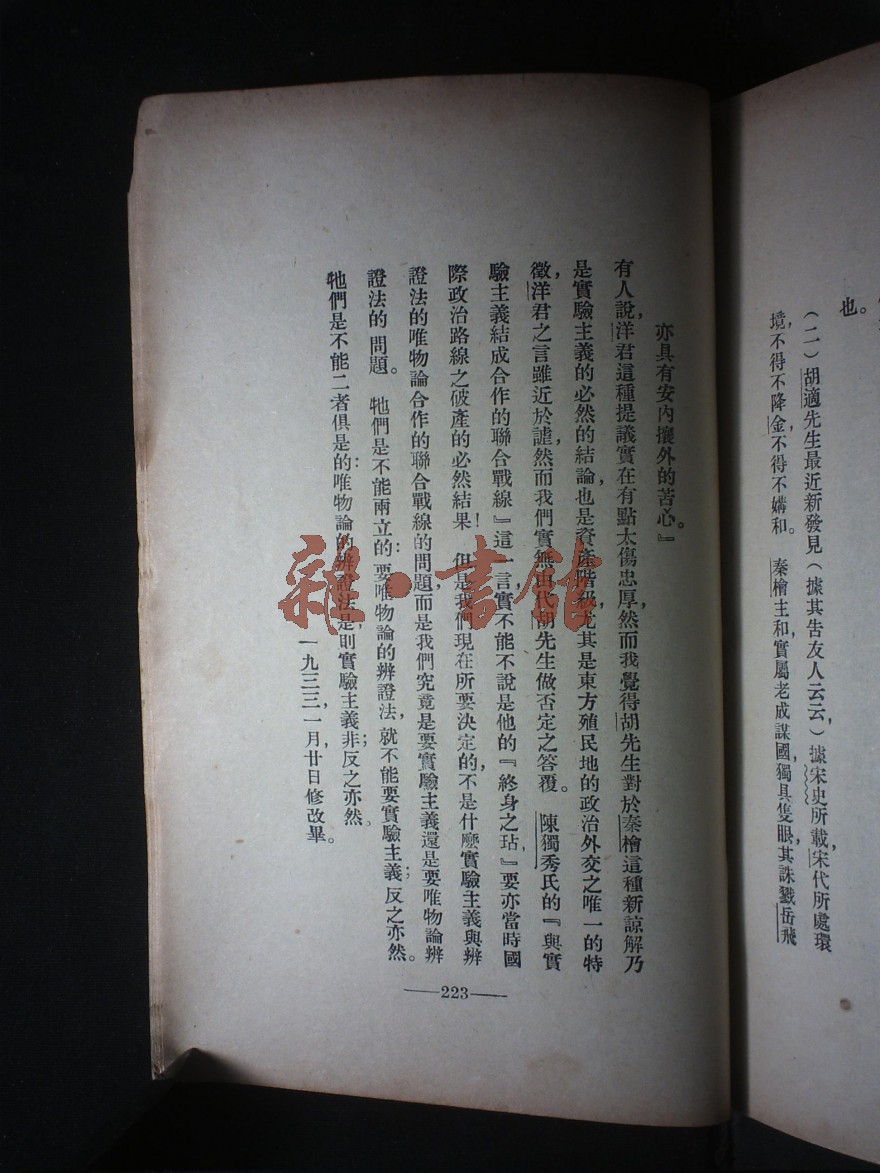 也。
（二）胡適先生最近新發見（據其告友人云云，）據宋史所載，宋代所處環
境，不得不降金，不得不媾和。 秦檜主和，實屬老成謀國，獨具隻眼，其誅戮岳飛
亦具有安內攘外的苦心。』
有人說，洋君這種提議實在有點太傷忠厚，然而我覺得胡先生對於秦檜這種新諒解乃
是實驗主義的必然的結論，也是資產階級，尤其是東方殖民地的政治外交之唯一的特
徵，洋君之言雖近於謔，然而我們實無由代胡先生做否定之答覆。 陳獨秀氏的『與實
驗主義結成合作的聯合戰線』這一言，實不能不說是他的『終身之玷，』要亦當時國
際政治路線之破產的必然結果！ 但是我們現在所要決定的，不是什麽實驗主義與辨
證法的唯物論合作的聯合戰線的問題，而是我們究竟是要實驗主義還是要唯物論辨
證法的問題。 牠們是不能兩立的：要唯物論的辨證法，就不能要實驗主義；反之亦然。
牠們是不能二者俱是的：唯物論的辨證法是，則實驗主義非；反之亦然。
一九三三，一月廿日修改畢。
——223——
雜·書館